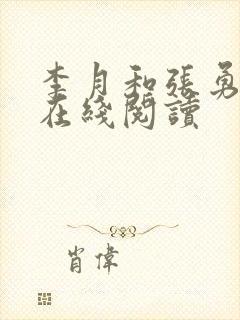 李月和張勇
在綫閱讀
肖偉